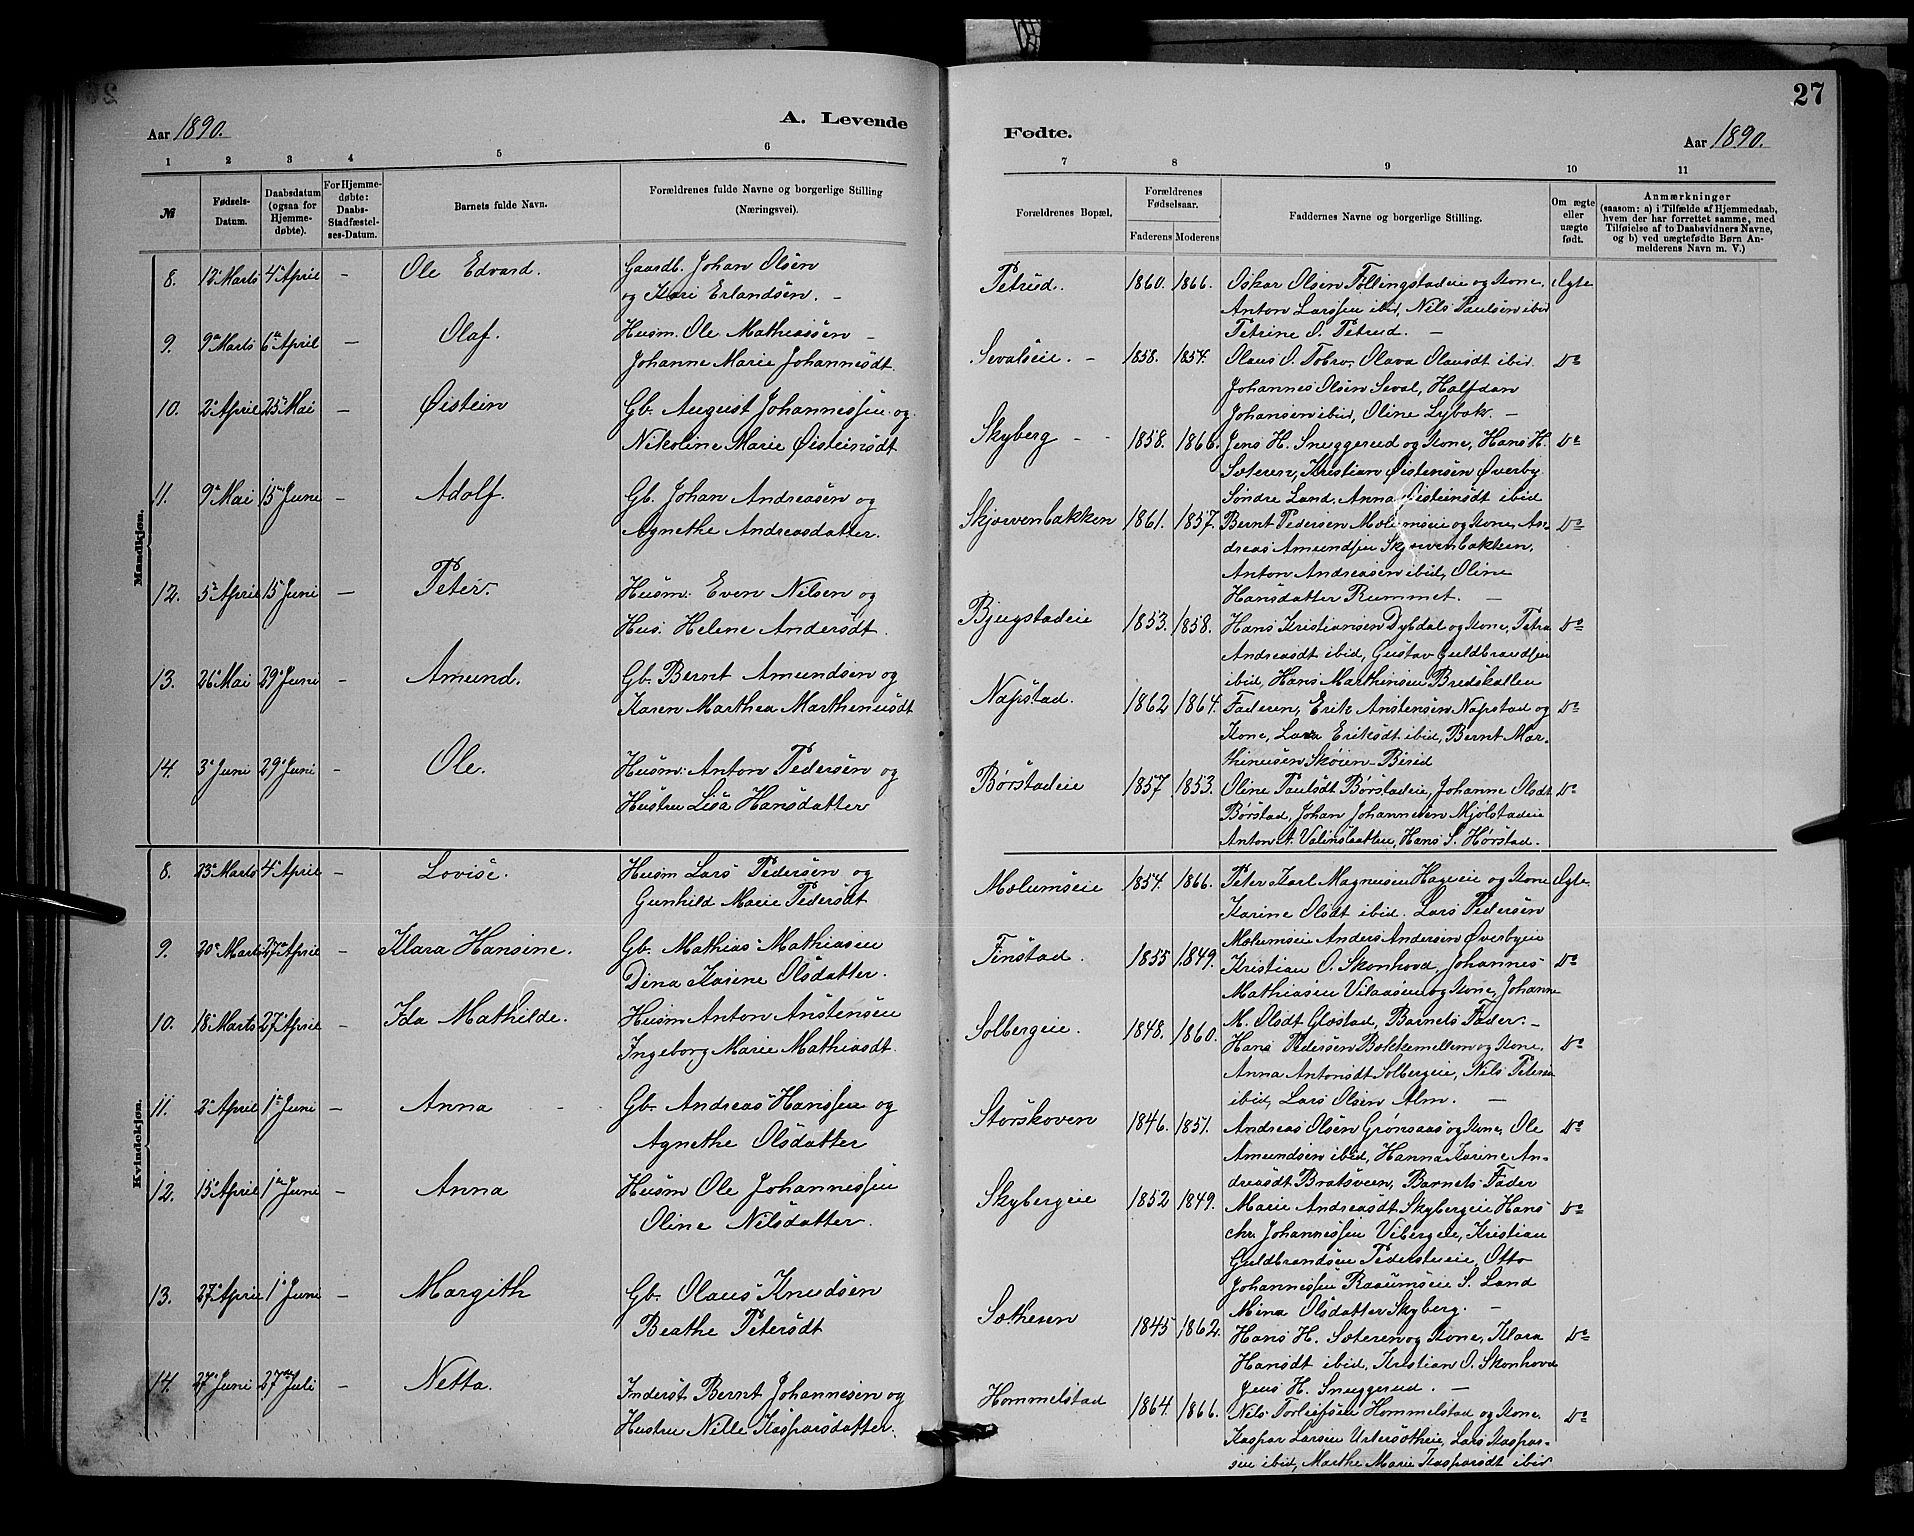 27
Aar 1890.
A. Levende
Fødte.
Aar 1890.
1 2 3 4 5 6
7 8 9 10 11
№
Fødsels-
Datum.
Daabsdatum
(ogsaa for
Hjemme-
døbte).
For Hjemme-
døbte:
Daabs-
Stadfæstel-
ses-Datum.
Barnets fulde Navn.
Forældrenes fulde Navne og borgerlige Stilling
(Næringsvei).
Forældrenes Bopæl.
Forældrenes
Fødselsaar.
Faderens Moderens
Faddernes Navne og borgerlige Stilling.
Om ægte
eller
uægte
født.
Anmærkninger
(saasom: a) i Tilfælde af Hjemmedaab,
hvem der har forrettet samme, med
Tilføielse af to Daabsvidners Navne,
og b) ved uægtefødte Børn An-
melderens Navn m. V.)
Mandkjøn.
8. 4 April – Ole Edvard. Gaardb. Johan Olsen
og Kari Erlandsen. –
Petrud. 1860. 1866. Oskar Olsen Føllingstadeie og Kone, Ægte
Anton Larssen ibid, Nils Paulsen ibid
Petrine O. Petrud. –
9. 9 Marts 6 April – Olaf. Husm. Ole Mathiassen –
Johanne Marie Johannesdt.
Sevalseie. – 1858. 1857. Olaus O. Tobro, Olava Olausdt ibid. Do
Johannes Olsen Seval, Halfdan
Johansen ibid, Oline Lybæk. –
10. 2 April 25 Mai – Øistein Gb. August Johannessen og
Nikoline Marie Øisteinsdt
Skyberg – 1858. 1866. Jens H. Snuggerud og Kone, Hans H. Do
Sæteren, Kristian Øistensen Øverby
Søndre Land, Anna Øisteinsdt ibid
11. 9 Mai 15 June – Adolf. Gb. Johan Andreasen og
Agnethe Andreasdatter.
Skjærvenbakken 1861. 1857. Bernt Pedersen Mælumseie og Kone, An- Do
dreas Amundsen Skjærvenbakken,
Anton Andreasen ibid, Oline
Hansdatter Rummet. –
12. 5 April 15 Juni – Peter. Husm. Even Nilsen og
Hus. Helene Andersdt.
Bjugstadeie 1853. 1858. Hans Kristiansen Dybdal og Kone, Petra Do
Andreasdt ibid, Gustav Guldbrandsen
ibid, Hans Marthinsen Bredskallen
13. 26 Mai 29 Juni – Amund. Gb. Bernt Amundsen og
Karen Marthea Marthinusdt
Næpstad. 1862 1864. Faderen, Erik Anstensen Næpstad og Do
Kone, Lava Eriksdt ibid, Bernt Mar-
thinusen Skøien Birid
14. 3 Juni 29 Juni – Ole. Husm. Anton Pedersen og
Hustru Lisa Hansdatter
Børstadeie 1857 1853. Oline Paulsdt Børstadeie, Johanne Olsdt Do
Børstad, Johan Johannesen Mjølstadeie
Anton A. Hans S. Hørstad.
Kvindekjøn.
8. 23 Marts 4 April – Lovise. Husm Lars Pedersen og
Gunhild Marie Pedersdt
Mælumseie 1854. 1866. Peter Karl Magnusen Hageeie og Kone Ægte
Karine Olsdt ibid. Lars Pedersen
Mælumseie Anders Andersen Øverbyeie
9. 20 Marts 27 April – Klara Hansine. Gb. Mathias Mathiasen
Dina Karine Olsdatter.
Finstad. 1855 1849. Kristian O. Skonhovd, Johannes Do
Mathiasen Vilaasen og Kone, Johanne
M. Olsdt Glæstad, Barnets Fader. –
10. 18 Marts 27 April – Ida Mathilde. Husm Anton Anstensen
Ingeborg Marie Mathiasdt.
Solbergeie. 1848. 1860. Hans Pedersen Bakkemellem og Kone, Do
Anna Antonsdt Solbergeie, Nils Petersen
ibid, Lars Olsen Alm. –
11. 2 April 1 Juni – Anna Gb. Andreas Hanssen og
Agnethe Olsdatter
Storskoven 1846. 1851. Andreas Olsen Grønaas og Kone, Ole Do
Amundsen ibid, Hanna Karine An-
dreasdt Bratsveen, Barnets Fader
12. 15 April 1 Juni – Anna Husm Ole Johannessen
Oline Nilsdatter.
Skybergeie 1852 1849. Marie Andreasdt Skybergeie Hans Do
Chr. Johannessen Vibergeie, Kristian
Guldbrandsen Pederstueie, Otto
Johannessen Raaumseie S. Land
Mina Olsdatter Skyberg. –
13. 27 April 1 Juni – Margith Gb. Olaus Knudsen
Beathe Petersdt
Sæthesen 1845 1862. Hans H. Sæteren og Kone, Klara Do
Hansdt ibid, Kristian O. Skonhovd
Jens H. Snuggerud. –
14. 27 Juni 27 Juli – Netta. Inderst. Bernt Johannesen og
Hustru Nille Kasparsdatter.
Hommelstad 1864. 1866. Nils Torleifsen Hommelstad og Kone, Do
Kaspar Larsen Lars Kaspar-
sen ibid, Marthe Marie Kasparsdt ibid